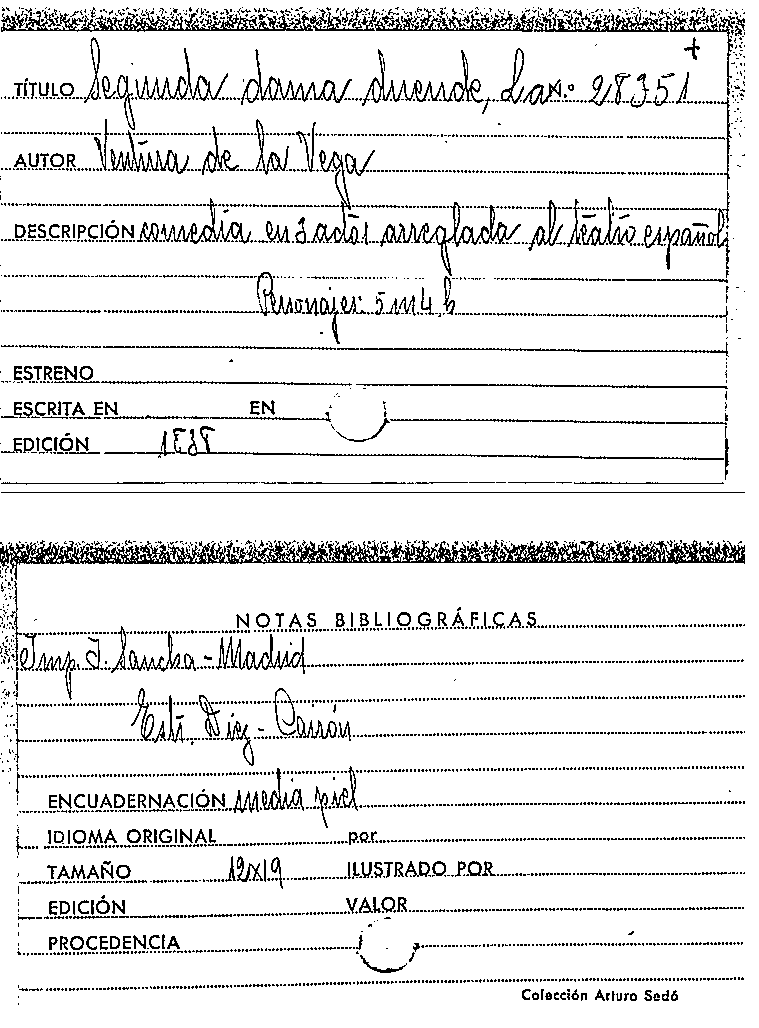 +
TÍTULO Segunda dama duende, La N.º 28351
AUTOR Ventura de la Vega
DESCRIPCIÓN comedia en 3 actos arreglada al teatro español
Personajes: 5 m 4 h
ESTRENO
ESCRITA EN EN
EDICIÓN 1838
NOTAS BIBLIOGRÁFICAS
Imp. J. Sancha - Madrid
Estr. Diez - Cairón
ENCUADERNACIÓN media piel
IDIOMA ORIGINAL por
TAMAÑO 12x19 ILUSTRADO POR
EDICIÓN VALOR
PROCEDENCIA
Colección Arturo Sedó